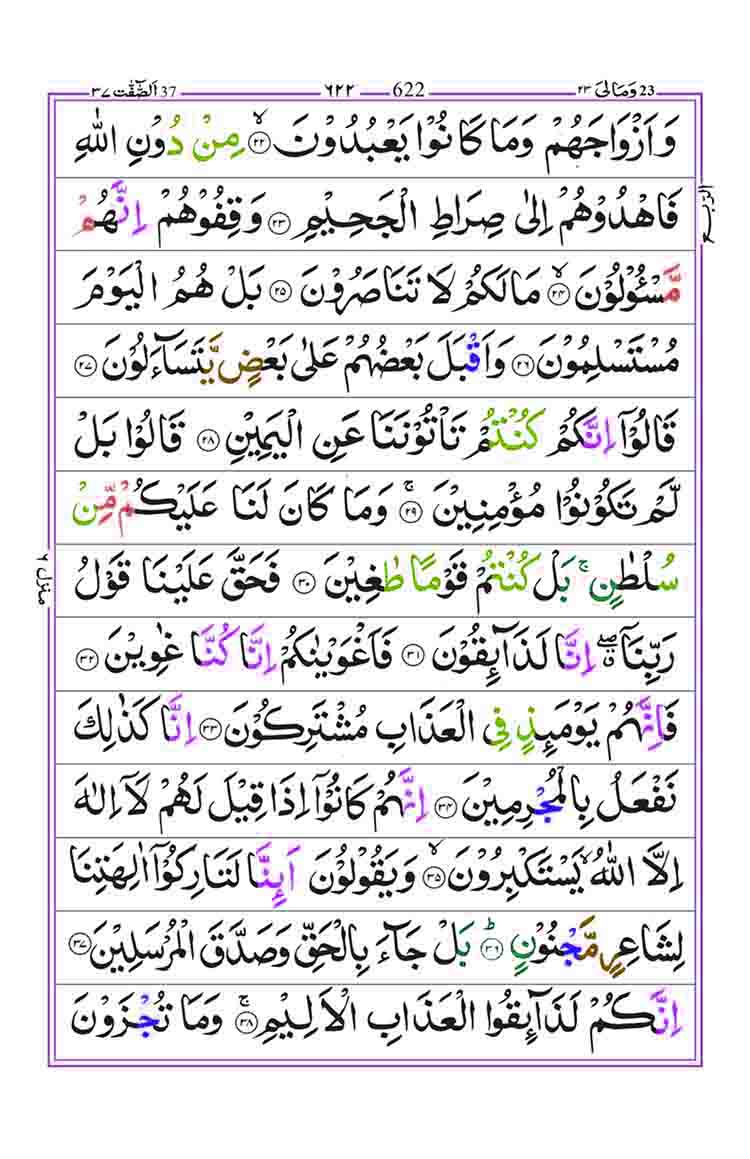 23 وَمَالِیَ ۲۳ 622 ۶۲۲ 37 اَلصّٰٓفّٰت ۳۷
وَاَزْوَاجَهُمْ وَمَا كَانُوْا يَعْبُدُوْنَ ۙ‏﴿۲۲﴾ مِنْ دُوْنِ اللّٰهِ
فَاهْدُوْهُمْ اِلٰى صِرَاطِ الْجَحِيْمِ ﴿۲۳﴾ وَقِفُوْهُمْ اِنَّهُمْ
الربع
مَّسْـُٔوْلُوْنَ ۙ‏﴿۲۴﴾ مَا لَكُمْ لَا تَنَاصَرُوْنَ ﴿۲۵﴾ بَلْ هُمُ الْيَوْمَ
مُسْتَسْلِمُوْنَ ﴿۲۶﴾ وَاَقْبَلَ بَعْضُهُمْ عَلٰى بَعْضٍ يَّتَسَآءَلُوْنَ ﴿۲۷﴾
قَالُوْۤا اِنَّكُمْ كُنْتُمْ تَاْتُوْنَنَا عَنِ الْيَمِيْنِ ﴿۲۸﴾ قَالُوْا بَلْ
لَّمْ تَكُوْنُوْا مُؤْمِنِيْنَ ۚ‏﴿۲۹﴾ وَمَا كَانَ لَنَا عَلَيْكُمْ مِّنْ
سُلْطٰنٍ ۚ بَلْ كُنْتُمْ قَوْمًا طٰغِيْنَ ﴿۳۰﴾ فَحَقَّ عَلَيْنَا قَوْلُ
منزل ۶
رَبِّنَاۤ ۖ اِنَّا لَذَآئِقُوْنَ ﴿۳۱﴾ فَاَغْوَيْنٰكُمْ اِنَّا كُنَّا غٰوِيْنَ ﴿۳۲﴾
فَاِنَّهُمْ يَوْمَئِذٍ فِى الْعَذَابِ مُشْتَرِكُوْنَ ﴿۳۳﴾ اِنَّا كَذٰلِكَ
نَفْعَلُ بِالْمُجْرِمِيْنَ ﴿۳۴﴾ اِنَّهُمْ كَانُوْۤا اِذَا قِيْلَ لَهُمْ لَاۤ اِلٰهَ
اِلَّا اللّٰهُ ۙ يَسْتَكْبِرُوْنَ ۙ‏﴿۳۵﴾ وَيَقُوْلُوْنَ اَئِنَّا لَتَارِكُوْۤا اٰلِهَتِنَا
لِشَاعِرٍ مَّجْنُوْنٍ ؕ‏﴿۳۶﴾ بَلْ جَآءَ بِالْحَقِّ وَصَدَّقَ الْمُرْسَلِيْنَ ﴿۳۷﴾
اِنَّكُمْ لَذَآئِقُوا الْعَذَابِ الْاَلِيْمِ ۚ‏﴿۳۸﴾ وَمَا تُجْزَوْنَ